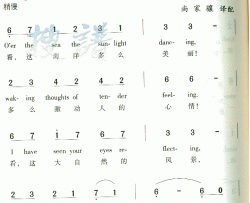 稍慢 尚家骧 译配
6 7 1 2 3 1 3 3 -
O'er the sea the sun-light danc- ing,
看，这 海洋 多么 美丽！
2 3 4 4 2 4 2 2 -
wak- ing thoughts of ten- der feel- ing.
多么 激动 人的 心情！
6 7 i 7 6 7 3 3 -
I have seen your eyes re- flect- ing,
看，这 大自 然的 风景，
1 2 3 2 1 2 7 1 6 - 6 0